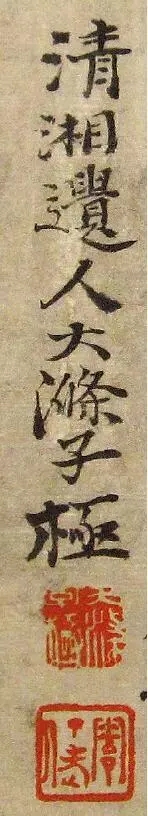 清湘遺人大滌子極